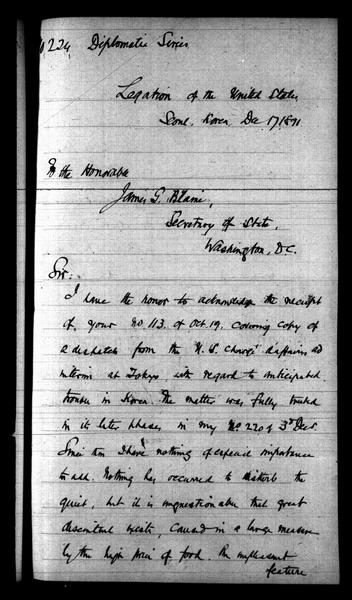 224, Diplomatic Series
Legation of the United States,
Seoul, Korea Dec 17, 1891
To the Honorable
James G. Blaine,
Secretary of State,
Washington, D.C.
Sir:
I have the honor to acknowledge the receipt
of your no. 113. of Oct. 19. covering copy of
a dispatch from the U.S. Chargé d'affaires ad
interim at Tokyo with regard to anticipated
trouble in Korea. The matter was fully treated
in its later phases in my No 220 of 3d Dec.
Since then I have nothing of especial importance
to add. Nothing has occurred to disturb the
quiet, but it is unquestionable that great
discontent exists, caused in a large measure
by the high price of food. An unpleasant
feature